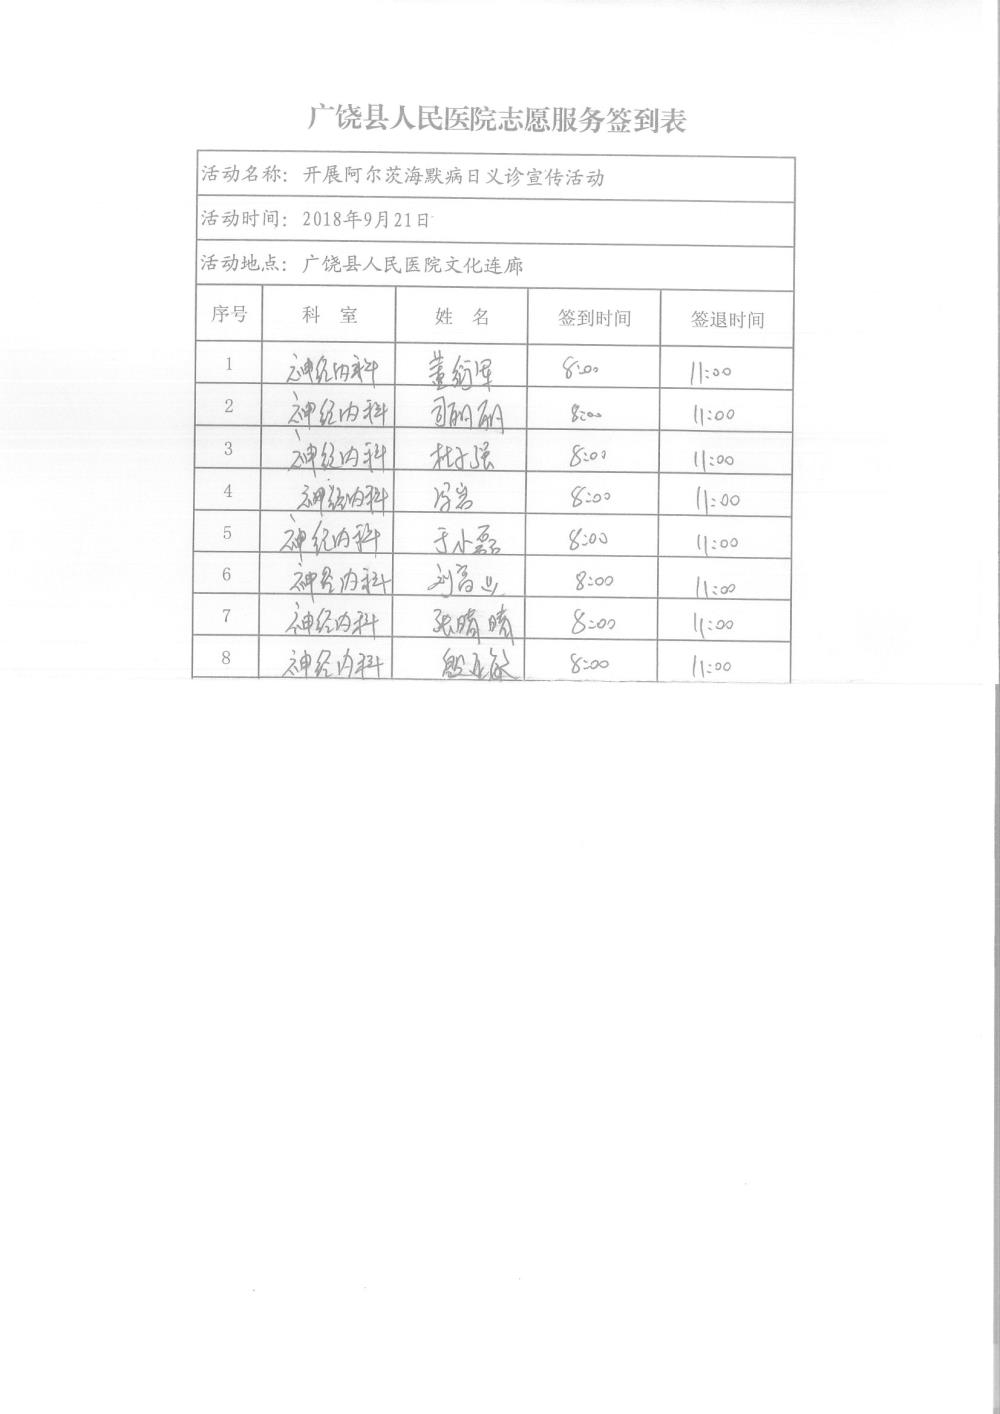 广饶县人民医院志愿服务签到表
活动名称：开展阿尔茨海默病日义诊宣传活动
活动时间：2018年9月21日
活动地点：广饶县人民医院文化连廊
序号 科 室 姓 名 签到时间 签退时间
1 神经内科 8:00 11:00
2 神经内科 司丽丽 8:00 11:00
3 神经内科 杜子强 8:00 11:00
4 神经内科 8:00 11:00
5 神经内科 于小磊 8:00 11:00
6 神经内科 8:00 11:00
7 神经内科 张晴晴 8:00 11:00
8 神经内科 8:00 11:00